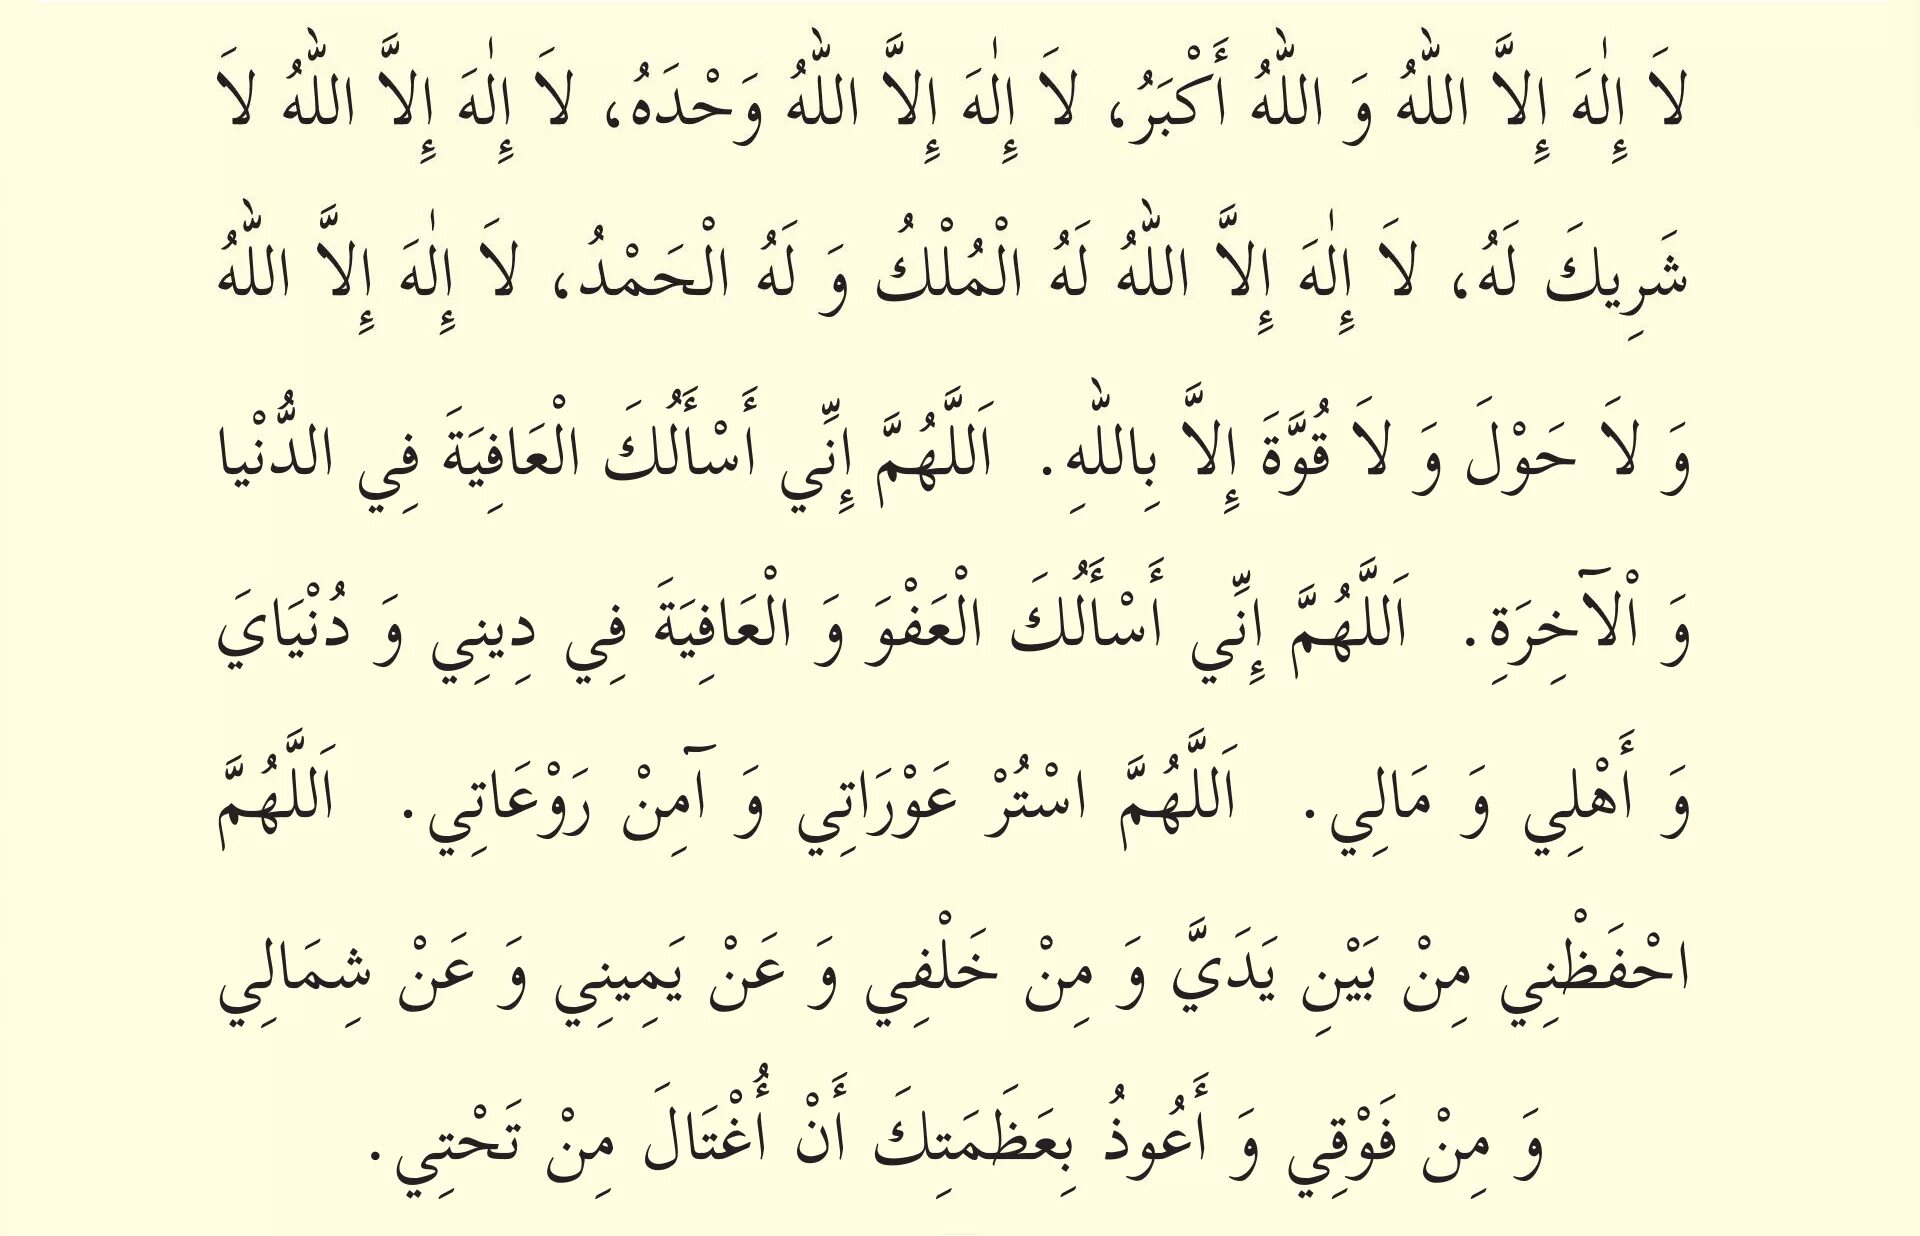 لاَ إِلٰهَ إِلاَّ اللّٰهُ وَ اللّٰهُ أَكْبَرُ، لاَ إِلٰهَ إِلاَّ اللّٰهُ وَحْدَهُ، لاَ إِلٰهَ إِلاَّ اللّٰهُ لاَ
شَرِيكَ لَهُ، لاَ إِلٰهَ إِلاَّ اللّٰهُ لَهُ الْمُلْكُ وَ لَهُ الْحَمْدُ، لاَ إِلٰهَ إِلاَّ اللّٰهُ
وَ لاَ حَوْلَ وَ لاَ قُوَّةَ إِلاَّ بِاللّٰهِ. اَللَّهُمَّ إِنِّي أَسْأَلُكَ الْعَافِيَةَ فِي الدُّنْيا
وَ الْآخِرَةِ. اَللَّهُمَّ إِنِّي أَسْأَلُكَ الْعَفْوَ وَ الْعَافِيَةَ فِي دِينِي وَ دُنْيَايَ
وَ أَهْلِي وَ مَالِي. اَللَّهُمَّ اسْتُرْ عَوْرَاتِي وَ آمِنْ رَوْعَاتِي. اَللَّهُمَّ
احْفَظْنِي مِنْ بَيْنِ يَدَيَّ وَ مِنْ خَلْفِي وَ عَنْ يَمِينِي وَ عَنْ شِمَالِي
وَ مِنْ فَوْقِي وَ أَعُوذُ بِعَظَمَتِكَ أَنْ أُغْتَالَ مِنْ تَحْتِي.